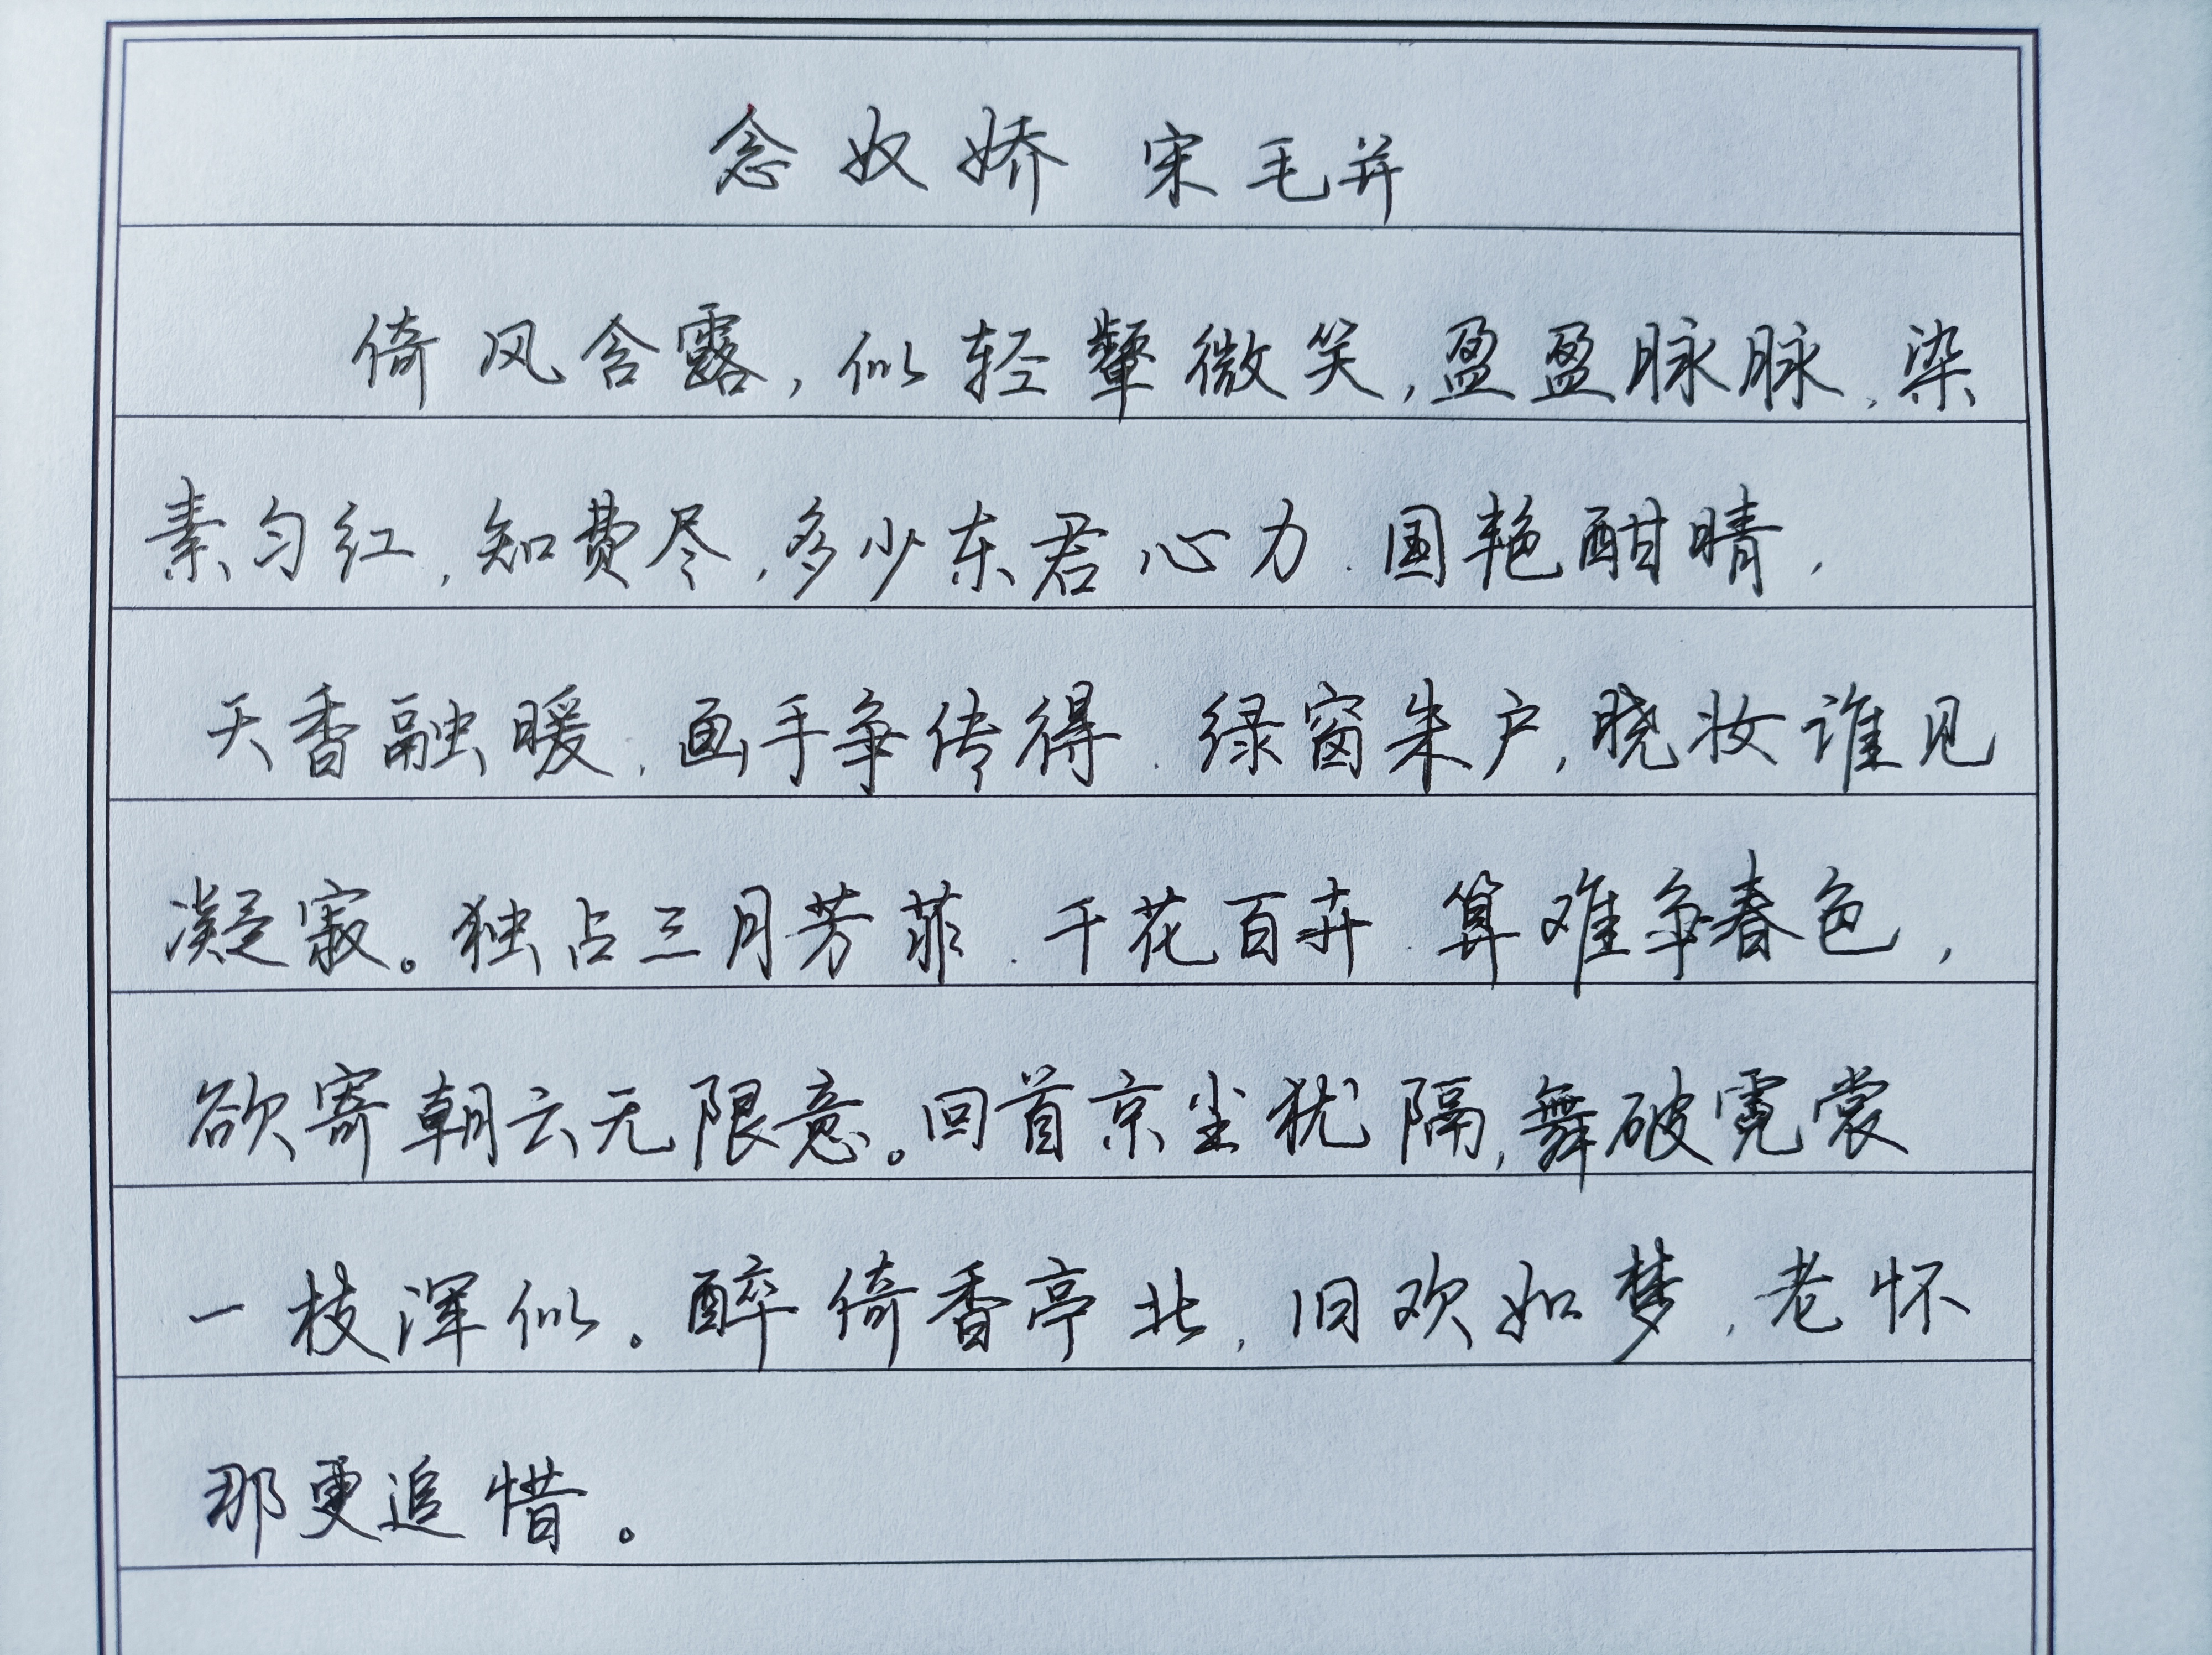 念奴娇 宋毛并
倚风含露,似轻颦微笑,盈盈脉脉,染
素匀红,知费尽,多少东君心力.国艳酣晴,
天香融暖,画手争传得.绿窗朱户,晓妆谁见
凝寂。独占三月芳菲.千花百卉.算难争春色,
欲寄朝云无限意。回首京尘犹隔,舞破霓裳
一枝浑似。醉倚香亭北,旧欢如梦,老怀
那更追惜。